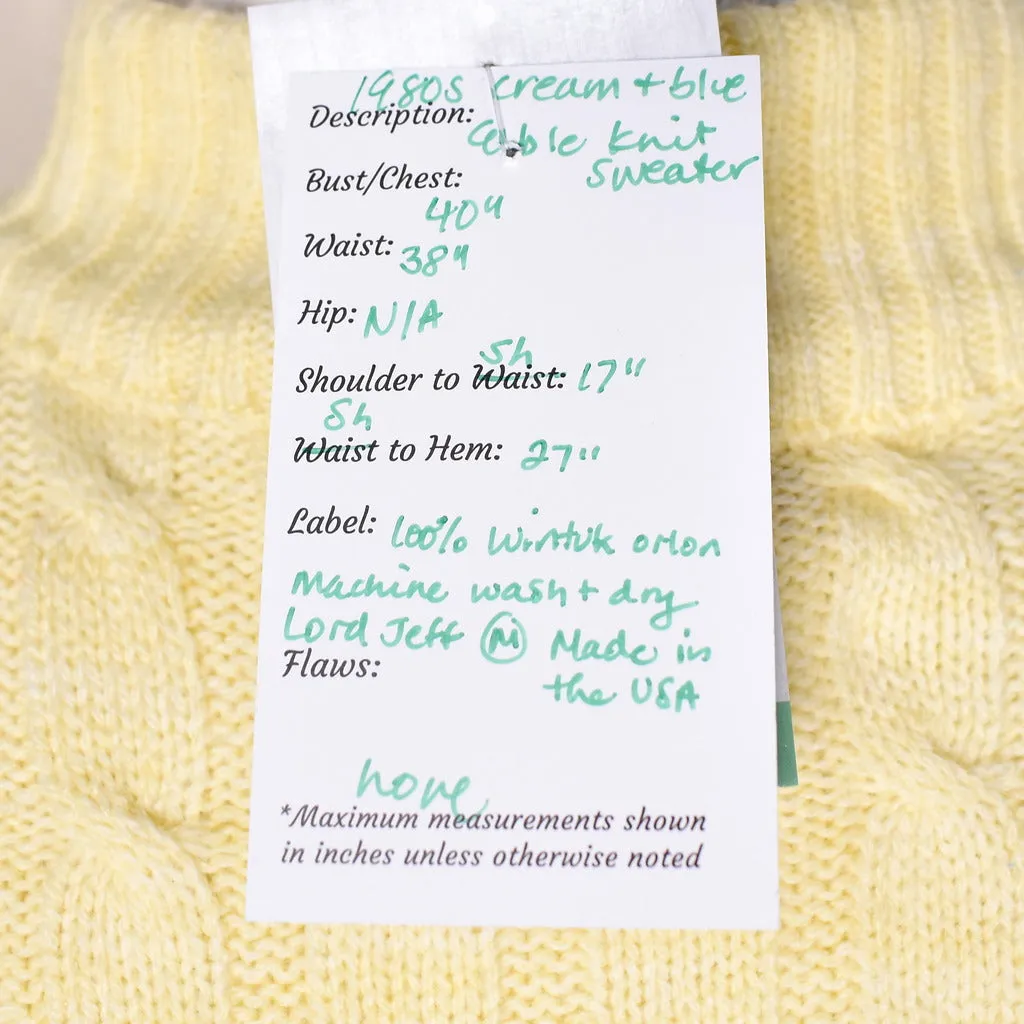 1980s cream + blue
Description: Cable knit
sweater
Bust/Chest: 40"
Waist: 38"
Hip: N/A
Sh
Shoulder to Waist: 17"
Sh
Waist to Hem: 27"
Label: 100% Wintuk orlon
Machine wash + dry
Lord Jeff M Made in
the USA
Flaws:
none
*Maximum measurements shown
in inches unless otherwise noted